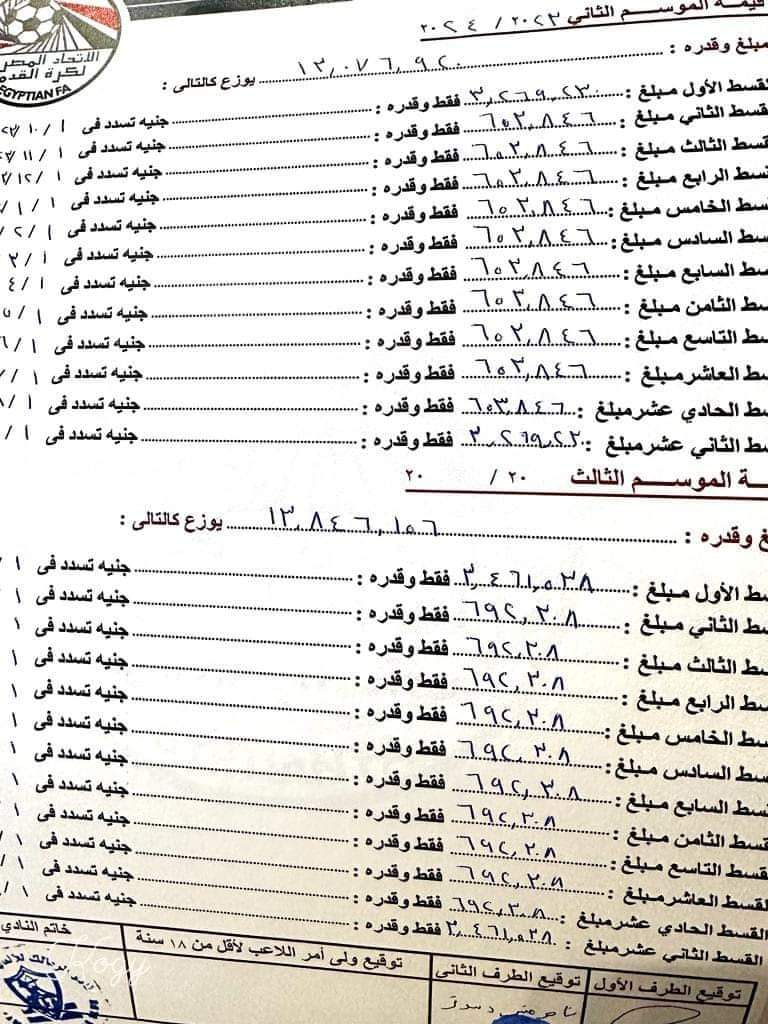 الاتحاد المصر
لكرة القدم
EGYPTIAN FA
قيمة الموسم الثاني ٢٠٢٣ / ٢٠٢٤
مبلغ وقدره : ١٣,٠٧٦,٩٢٠ يوزع كالتالى :
قسط الأول مبلغ : ٣,٢٦٩,٢٣٠ فقط وقدره : جنيه تسدد فى ١ / ١٠ /
قسط الثاني مبلغ : ٦٥٣,٨٤٦ فقط وقدره : جنيه تسدد فى ١ / ١١ /
سط الثالث مبلغ : ٦٥٣,٨٤٦ فقط وقدره : جنيه تسدد فى ١ / ١٢ /
سط الرابع مبلغ : ٦٥٣,٨٤٦ فقط وقدره : جنيه تسدد فى ١ / ١ /
سط الخامس مبلغ : ٦٥٣,٨٤٦ فقط وقدره : جنيه تسدد فى ١ / ٢ /
سط السادس مبلغ : ٦٥٣,٨٤٦ فقط وقدره : جنيه تسدد فى ١ / ٣
سط السابع مبلغ : ٦٥٣,٨٤٦ فقط وقدره : جنيه تسدد فى ١ / ٤
سط الثامن مبلغ : ٦٥٣,٨٤٦ فقط وقدره : جنيه تسدد فى ١ / ٥
سط التاسع مبلغ : ٦٥٣,٨٤٦ فقط وقدره : جنيه تسدد فى ١ / ٦
سط العاشر مبلغ : ٦٥٣,٨٤٦ فقط وقدره : جنيه تسدد فى ١ / ٧
سط الحادي عشر مبلغ : ٦٥٣,٨٤٦ فقط وقدره : جنيه تسدد فى ١ / ٨
سط الثاني عشر مبلغ : ٣,٢٦٩,٢٣٠ فقط وقدره : جنيه تسدد فى ١ /
ـة الموسم الثالث ٢٠ / ٢٠
غ وقدره : ١٣,٨٤٦,١٥٦ يوزع كالتالى :
سط الأول مبلغ : ٣,٤٦١,٥٣٨ فقط وقدره : جنيه تسدد فى ١ /
سط الثاني مبلغ : ٦٩٢,٣٠٨ فقط وقدره : جنيه تسدد فى ١
سط الثالث مبلغ : ٦٩٢,٣٠٨ فقط وقدره : جنيه تسدد فى ١
سط الرابع مبلغ : ٦٩٢,٣٠٨ فقط وقدره : جنيه تسدد فى ١
سط الخامس مبلغ : ٦٩٢,٣٠٨ فقط وقدره : جنيه تسدد فى ١
سط السادس مبلغ : ٦٩٢,٣٠٨ فقط وقدره : جنيه تسدد فى ١
سط السابع مبلغ : ٦٩٢,٣٠٨ فقط وقدره : جنيه تسدد فى ١
قسط الثامن مبلغ : ٦٩٢,٣٠٨ فقط وقدره : جنيه تسدد فى ١
لقسط التاسع مبلغ : ٦٩٢,٣٠٨ فقط وقدره : جنيه تسدد فى ١ /
لقسط العاشر مبلغ : ٦٩٢,٣٠٨ فقط وقدره : جنيه تسدد فى ١ /
القسط الحادي عشر مبلغ : ٦٩٢,٣٠٨ فقط وقدره : جنيه تسدد فى ١ /
القسط الثاني عشر مبلغ : ٣,٤٦١,٥٣٨ فقط وقدره : جنيه تسدد فى ١ /
توقيع الطرف الأول توقيع الطرف الثانى توقيع ولى أمر اللاعب لأقل من ١٨ سنة خاتم النادي